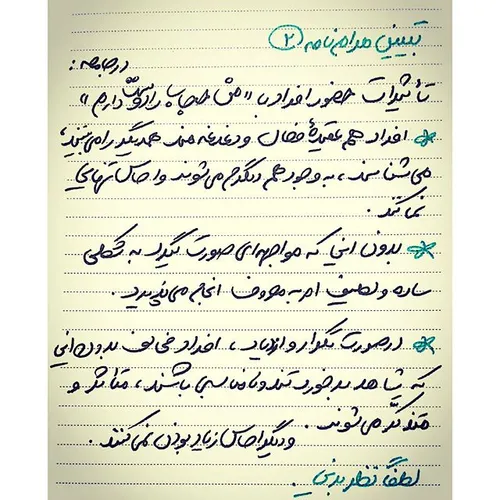 تبیین مرامنامه ②
تأثیرات حضور افراد با «من حجاب را دوست دارم» در جامعه:
* افراد هم عقیدهٔ فعال و دغدغه مند همدیگر را می بینند،
می شناسند، به وجود هم دلگرم می شوند و احساس تنهایی
نمی کنند.
* بدون اینکه مواجهه ای صورت بگیرد به شکلی
ساده و لطیف امر به معروف انجام می پذیرد.
* در صورت تکرار و ازدیاد، افراد مخالف بدون این
که شاهد برخورد تند و نامناسبی باشند، متأثر و
متذکّر می شوند.
و دیگر احساس زیاد بودن نمی کنند.
لطفاً نظر بدین.